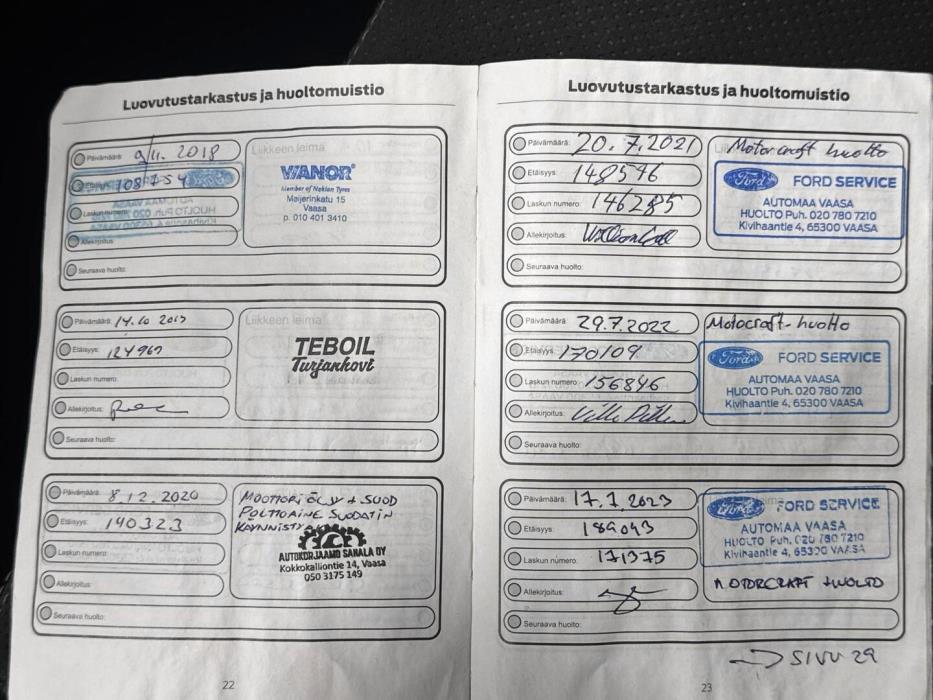 Luovutustarkastus ja huoltomuistio
Päivämäärä: 9/11. 2018
Liikkeen leima
Etäisyys: 108754
Laskun numero:
Allekirjoitus:
VIANOR
Member of Nokian Tyres
Meijerinkatu 15
Vaasa
p. 010 401 3410
Seuraava huolto:
Päivämäärä: 14.10 2019
Liikkeen leima
Etäisyys: 124969
Laskun numero:
Allekirjoitus:
TEBOIL
Turjankovi
Seuraava huolto:
Päivämäärä: 8.12.2020
Etäisyys: 140323
Laskun numero:
Allekirjoitus:
MOOTTORIÖLJY + SUOD
POLTTOAINE SUODATIN
KÄYNNISTYS
AUTOKORJAAMO SANALA OY
Kokkokalliontie 14, Vaasa
050 3175 149
Seuraava huolto:
22
Luovutustarkastus ja huoltomuistio
Päivämäärä: 20.7.2021
Etäisyys: 148596
Laskun numero: 146285
Allekirjoitus:
Motorcraft huolto
Ford FORD SERVICE
AUTOMAA VAASA
HUOLTO Puh. 020 780 7210
Kivihaantie 4, 65300 VAASA
Seuraava huolto:
Päivämäärä: 29.7.2022
Etäisyys: 170109
Laskun numero: 156846
Allekirjoitus:
Motocraft-huolto
Ford FORD SERVICE
AUTOMAA VAASA
HUOLTO Puh. 020 780 7210
Kivihaantie 4, 65300 VAASA
Seuraava huolto:
Päivämäärä: 17.7.2023
Etäisyys: 189093
Laskun numero: 171375
Allekirjoitus:
Ford FORD SERVICE
AUTOMAA VAASA
HUOLTO Puh. 020 780 7210
Kivihaantie 4, 65300 VAASA
MOTORCRAFT HUOLTO
Seuraava huolto:
→ SIVU 29
23